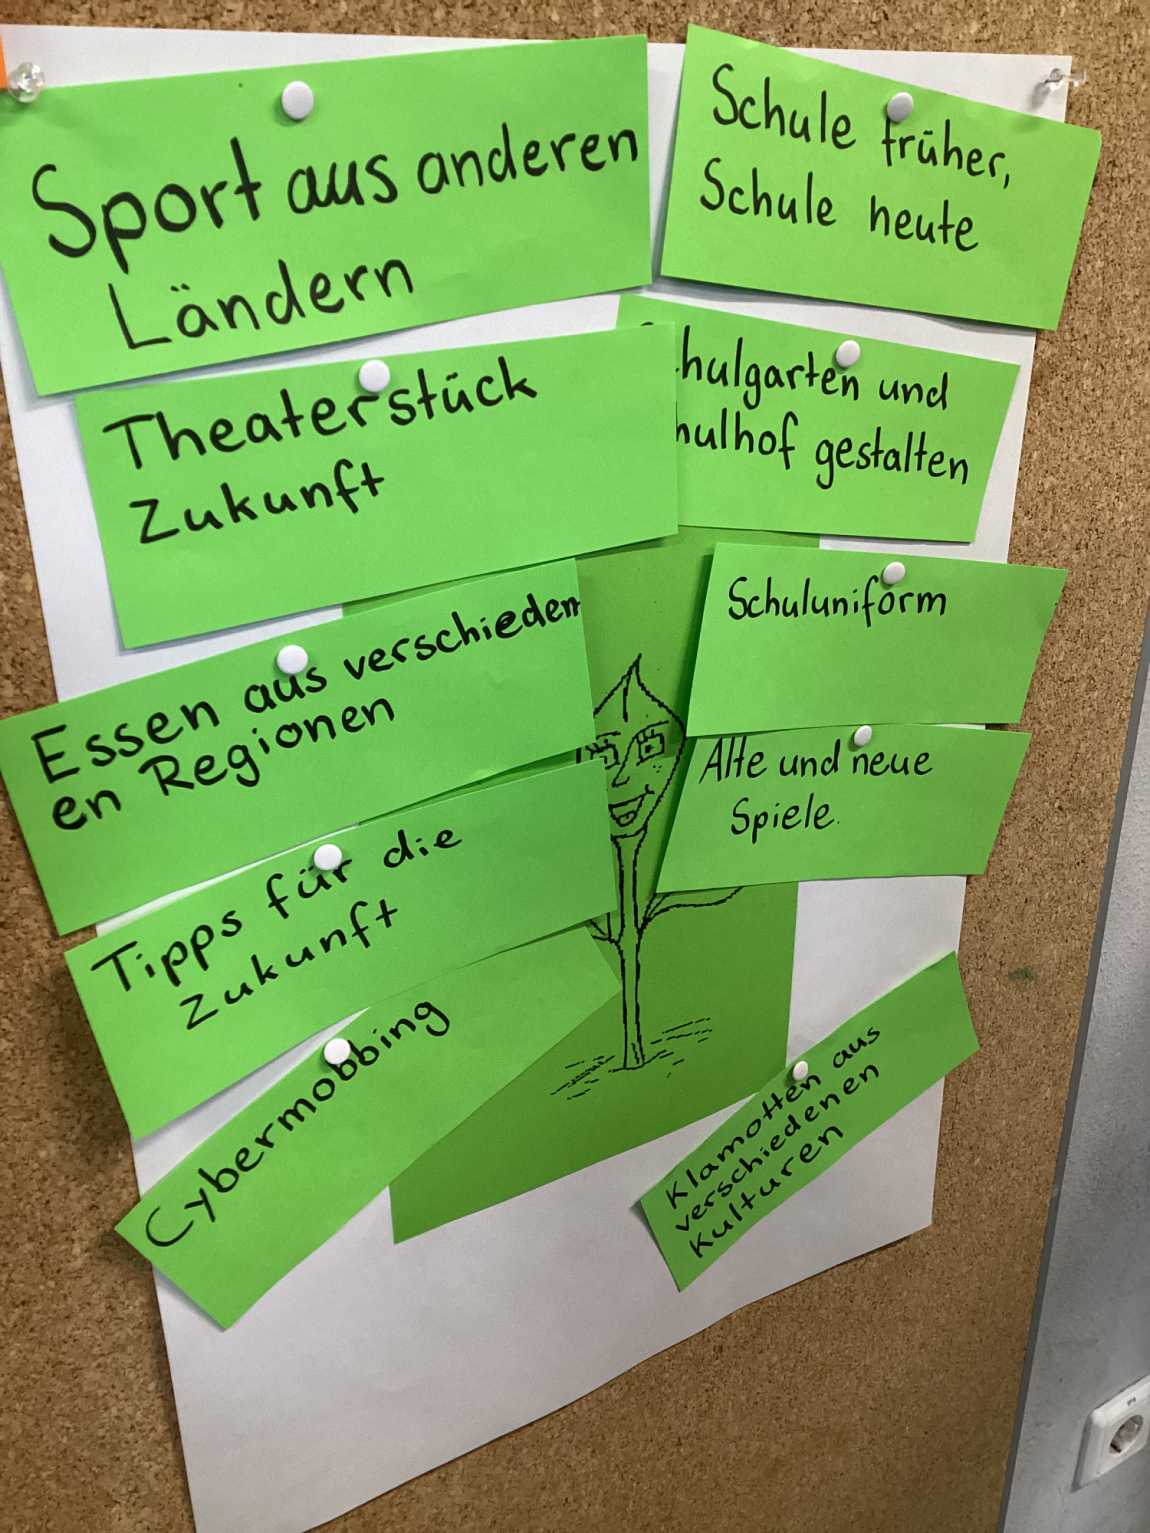 Sport aus anderen
Ländern
Theaterstück
Zukunft
Essen aus verschieden
en Regionen
Tipps für die
Zukunft
Cybermobbing
Schule früher,
Schule heute
chulgarten und
hulhof gestalten
Schuluniform
Alte und neue
Spiele.
Klamotten aus
verschiedenen
Kulturen